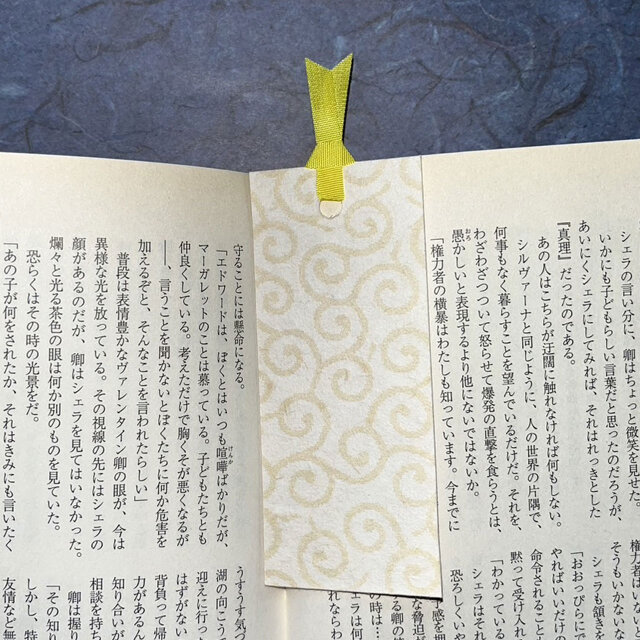 シェラの言い分に、卿はちょっと微笑を見せた。
いかにも子どもらしい言葉だと思ったのだろうが、
あいにくシェラにしてみれば、それはれっきとした
『真理』だったのである。
あの人はこちらが迂闊に触れなければ何もしない。
シルヴァーナと同じように、人の世界の片隅で、
何事もなく暮らすことを望んでいるだけだ。それを、
わざわざつついて怒らせて爆発の直撃を食らうとは、
愚かしいと表現するより他にないではないか。
「権力者の横暴はわたしも知っています。今までに
権力者は
そうもいかな
シェラも頷き
「おおっぴらにで
やればいいだけ
命令されること
黙って受け入れ
「わかっている
シェラはそれ
恐ろしいか
守ることには懸命になる。
「エドワードは、ぼくとはいつも喧嘩ばかりだが、
マーガレットのことは慕っている。子どもたちとも
仲良くしている。考えただけで胸くそが悪くなるが
――、言うことを聞かないとぼくたちに何か危害を
加えるぞと、そんなことを言われたらしい」
普段は表情豊かなヴァレンタイン卿の眼が、今は
異様な光を放っている。その視線の先にはシェラの
顔があるのだが、卿はシェラを見てはいなかった。
爛々と光る茶色の眼は何か別のものを見ていた。
恐らくはその時の光景をだ。
「あの子が何をされたか、それはきみにも言いたく
うすうす気づ
湖の向こう
迎えに行っ
背負って帰
はずがない
力があるん
知り合いが
相談を持ち
卿は握り
「その知り
しかし、特
友情など無